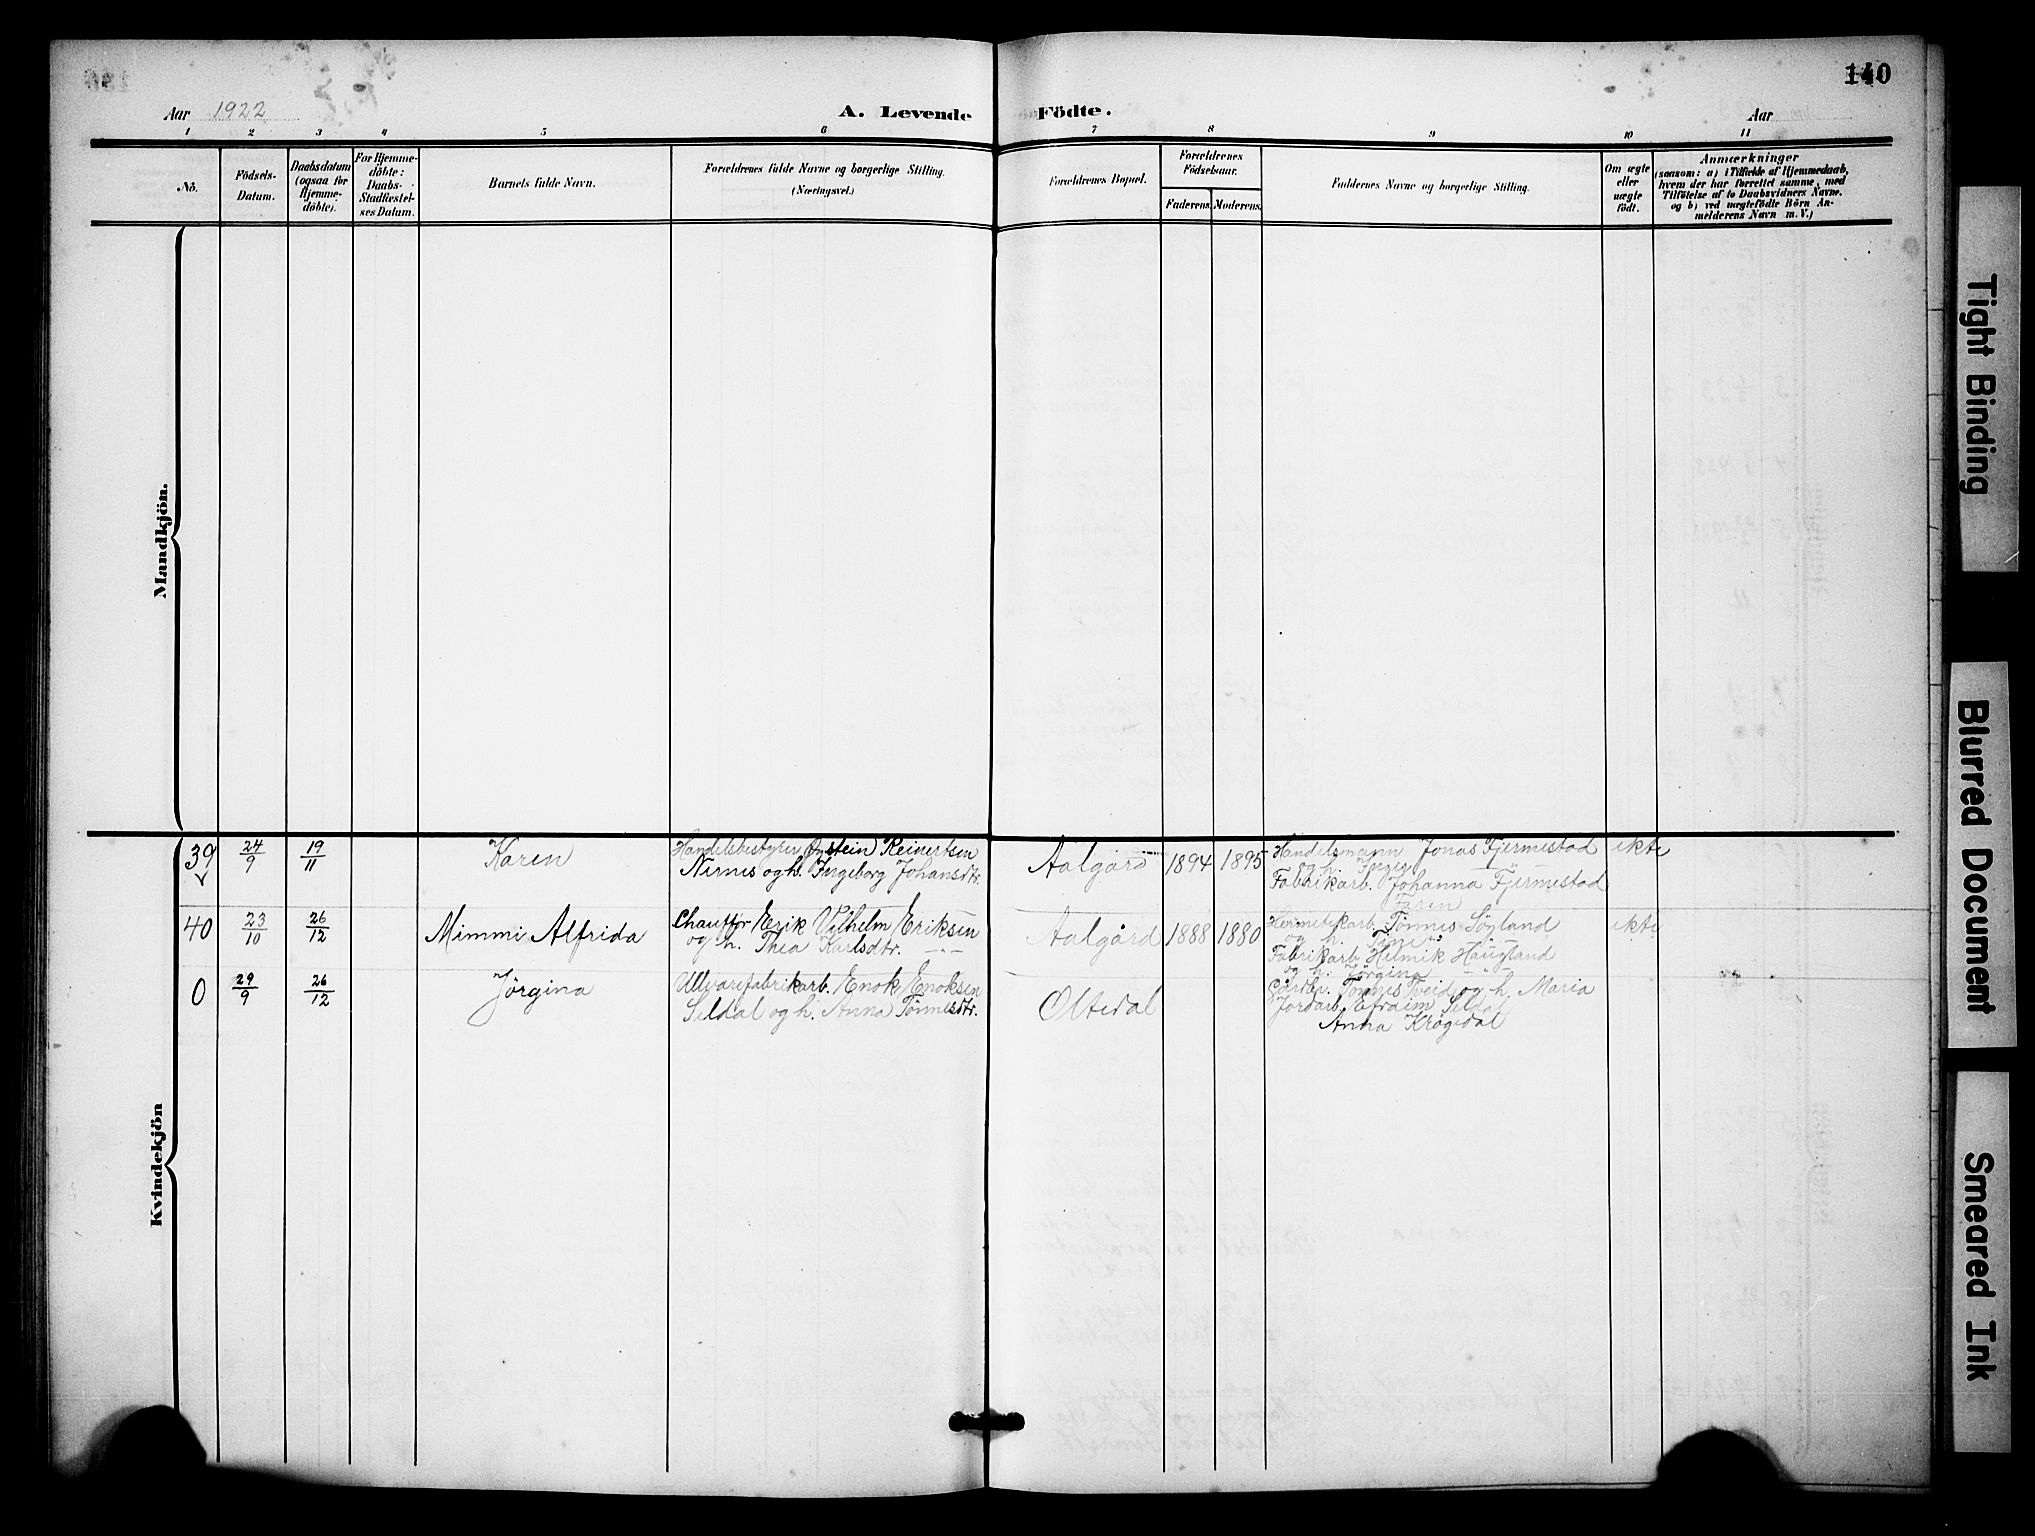 140
Aar 1922
A. Levende Födte.
Aar
1 2 3 4 5 6 7 8 9 10 11
No.
Födsels-
Datum.
Daabsdatum
(ogsaa for
Hjemme-
döbte).
For Hjemme-
döbte:
Daabs-
Stadfæstel-
ses Datum.
Barnets fulde Navn.
Forældrenes fulde Navne og borgerlige Stilling.
(Næringsvei.)
Forældrenes Bopæl.
Forældrenes
Födselsaar.
Faderens.
Moderens.
Faddernes Navne og borgerlige Stilling.
Om ægte
eller
uægte
födt.
Anmærkninger
(saasom: a) i Tilfælde af Hjemmedaab,
hvem der har forrettet samme, med
Tilföielse af to Daabsvidners Navne.
og b) ved uægtefödte Börn An-
melderens Navn m. V.)
Mandkjön.
Kvindekjön
39
24/9
19/11
Karen
Handelsbestyrer Øystein Reinertsen
og h. Ingeborg Johansdtr.
Aalgård
1894
1895
Handelsmann Jonas Fjermestad
og h.
Fabrikarb. Johanna Fjermestad
ekte
40
23/10
26/12
Mimmi Alfrida
Chauffør Erik Vilhelm Eriksen
og h. Thea Karlsdtr. -"-
Aalgård
1888
1880
Hermetikarb. Tønnes Søyland
og h.
Fabrikarb. Helmik Haugland
og h. Jørgina -"-
ekte
0
29/9
26/12
Jörgina
Ullvarefabrikarb. Enok Enoksen
Seldal og h. Anna Tönnesdtr.
Oltedal
Gårdbr. Tönnes Tveid og h. Maria
Jordarb. Efraim Seldal
Anna Krågedal
Tight Binding
Blurred Document
Smeared Ink